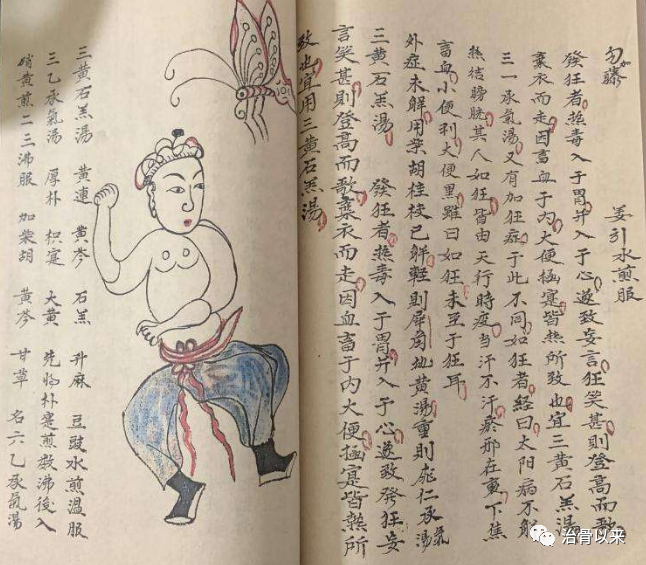 勾藤 姜引水煎服
發狂者熱毒入于胃并入于心遂致妄言狂笑甚則登高而歌
棄衣而走因畜血于内大便極寔皆熱所致也宜三黃石羔湯
三一承氣湯又有加狂症于此不同如狂者經曰太阳病不解
熱结膀胱其人如狂皆由天行時疫当汗不汗瘀邪在裏下蕉
畜血小便利大便黑雖曰如狂未至于狂耳
外症未解用柴胡桂枝已觧輕則犀角地黃湯重則桃仁承氣湯
三黃石羔湯 發狂者熱毒入于胃并入于心遂致發狂妄
言笑甚則登高而歌棄衣而走因血畜于内大便極寔皆熱所
致也宜用三黃石羔湯
三黃石羔湯 黃連 黃芩 石羔 升麻 豆豉水煎溫服
三乙承氣湯 厚朴 枳寔 大黃 先將朴寔煎数沸後入
硝黃煎二三沸服 加柴胡 黃芩 甘草 名六乙承氣湯
治骨以来